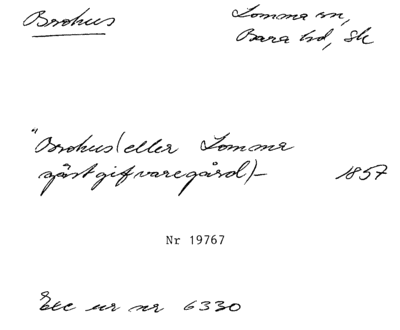 Brohus
Lomma sn,
Bara hd, Sk
"Brohus (eller Lomma
gästgifvaregård)— 1857
Nr 19767
Exc ur nr 6330